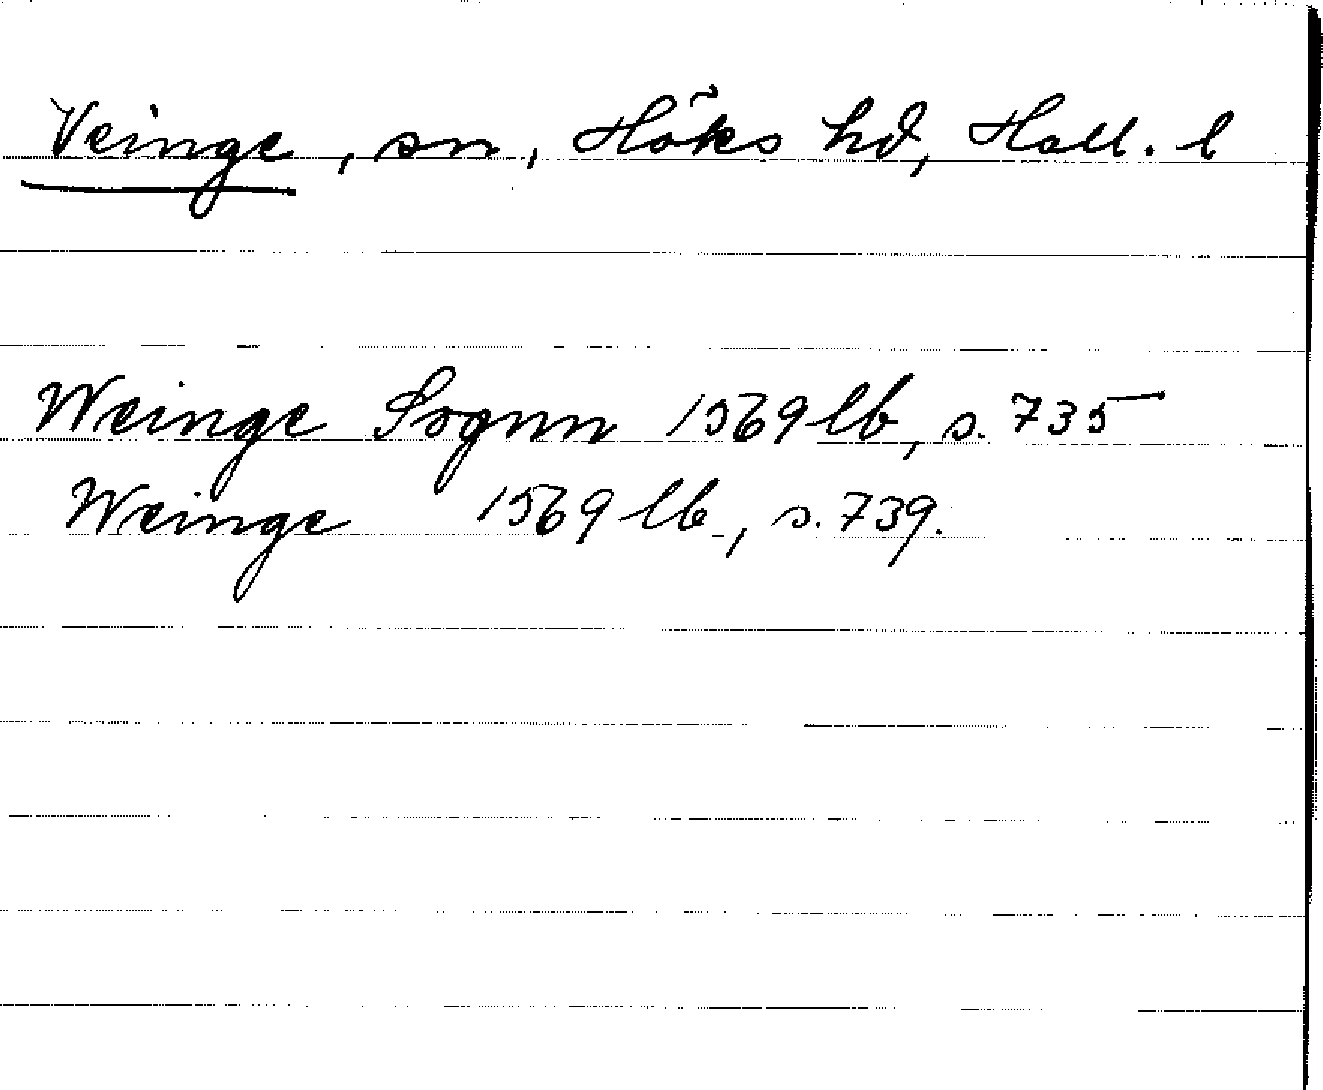 Veinge, sn, Höks hd, Hall. l
Weinge Sognn 1569 lb, s. 735
Weinge 1569 lb, s. 739.